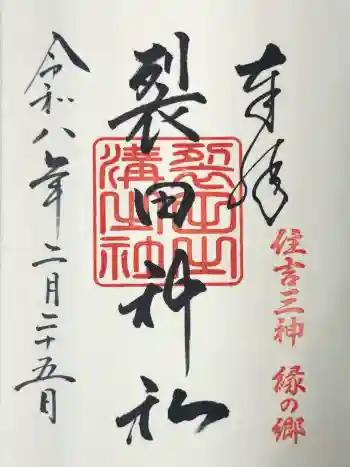 奉拝
住吉三神 縁の郷
裂田神社
裂田
溝社
令和八年二月二十五日